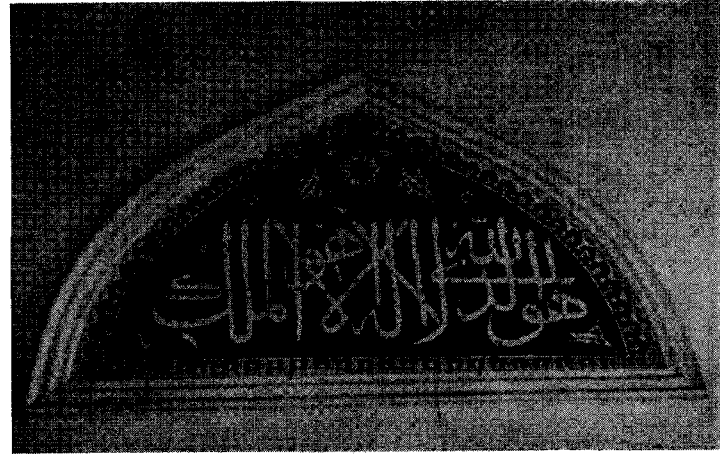 هو الله الذي لا اله الا هو الملك